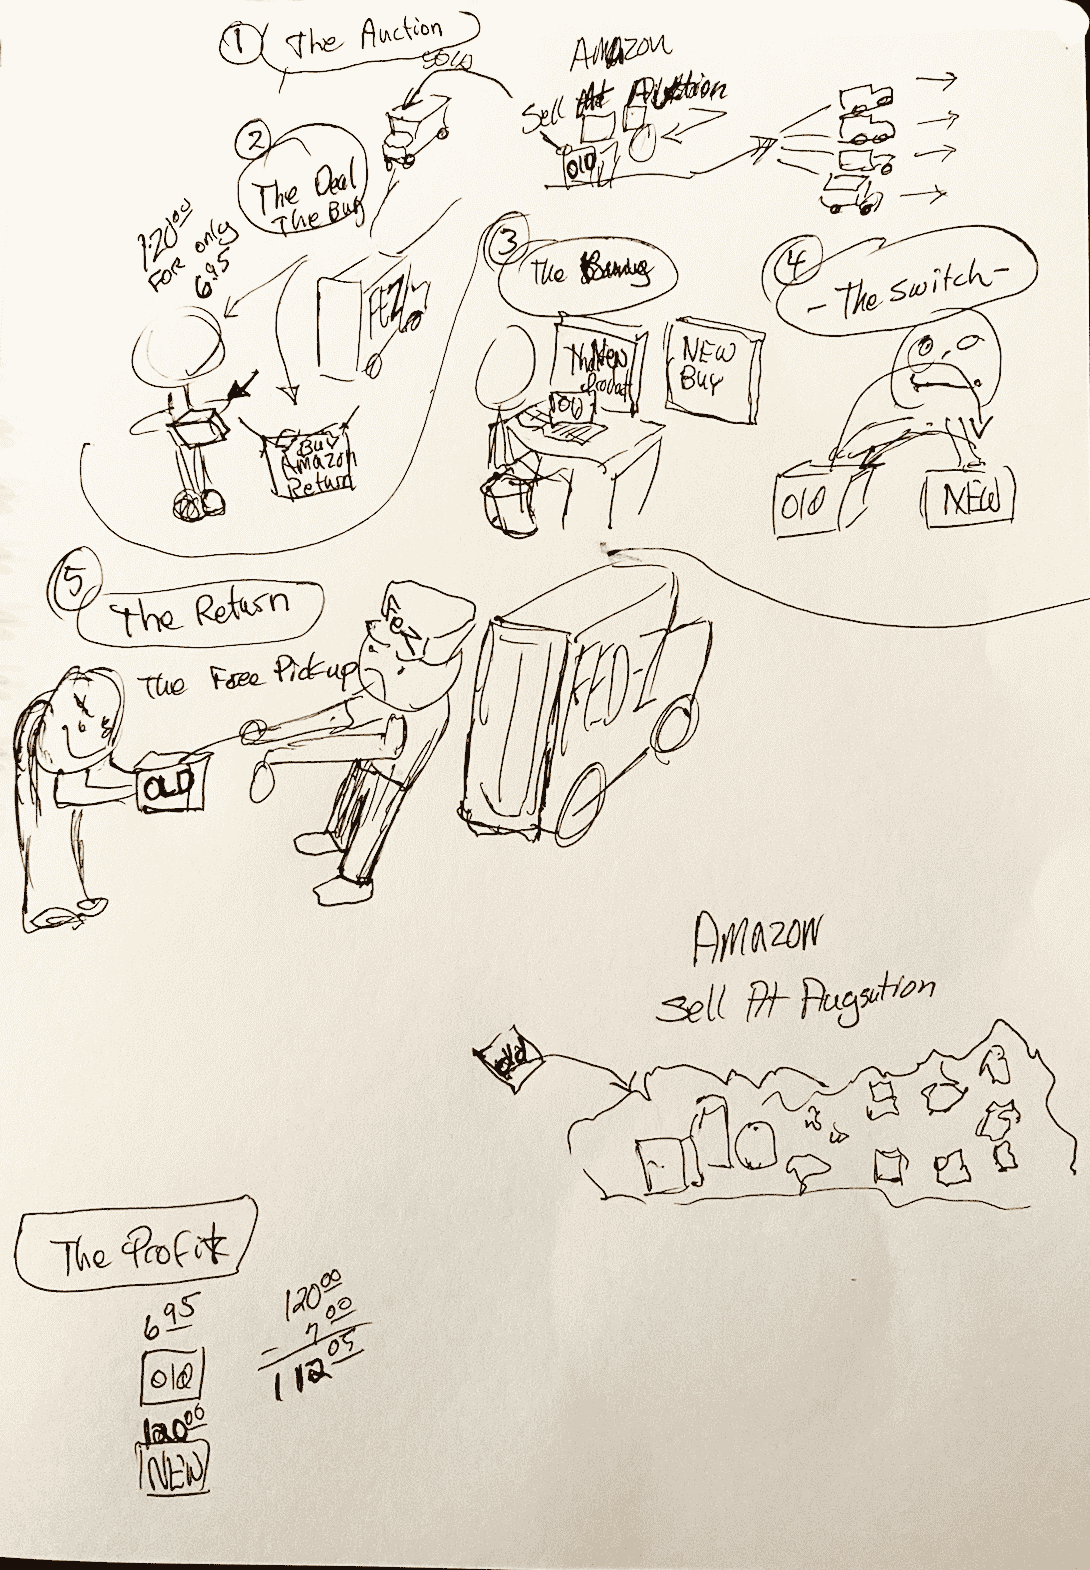 1 The Auction
SOLD
Amazon
Sell At Auction
OLD
2
The Deal
The Buy
120.00
FOR only
6.95
FEZ
Buy
Amazon
Return
3
The
New
Product
NEW
BUY
4
- The Switch -
Old
NEW
5
The Return
The Free Pick-up
FEZ
FED-Z
OLD
Amazon
Sell At Augsution
old
The Profit
6.95
old
120.00
NEW
120.00
- 7.00
112.05